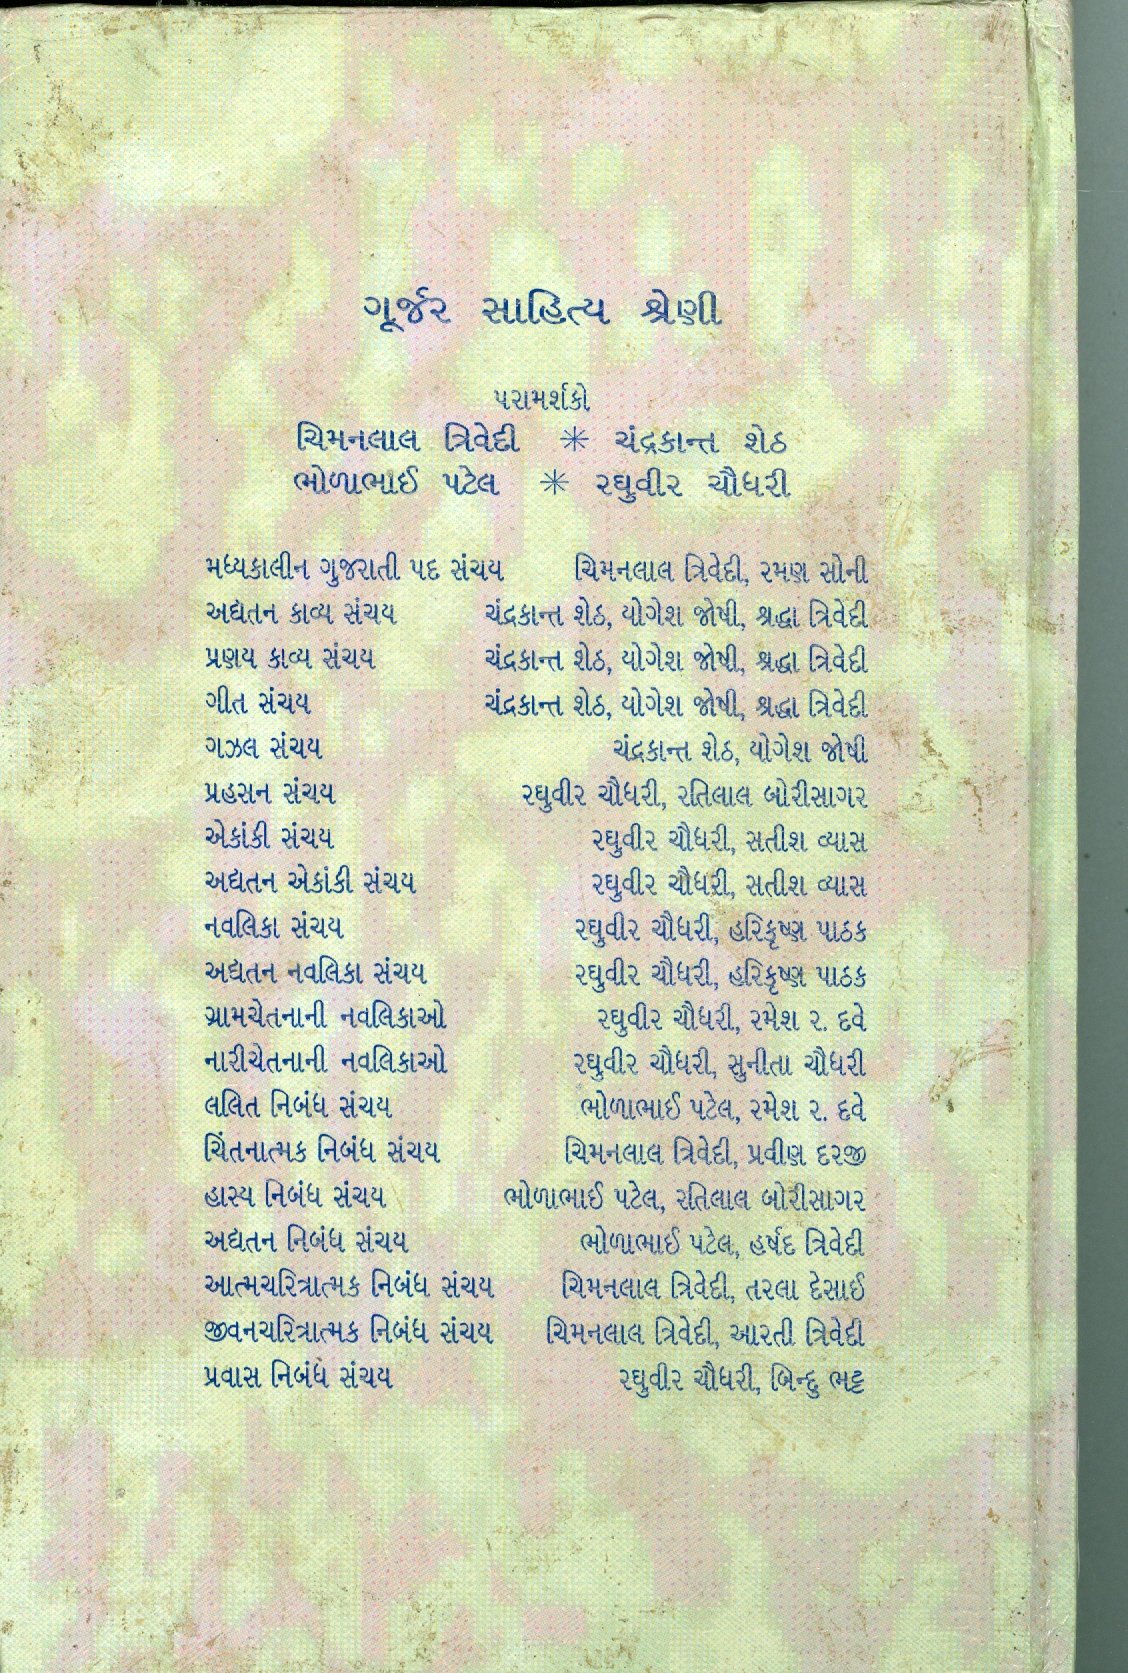 ગૂર્જર સાહિત્ય શ્રેણી
પરામર્શકો
ચિમનલાલ ત્રિવેદી ✳ ચંદ્રકાન્ત શેઠ
ભોળાભાઈ પટેલ ✳ રઘુવીર ચૌધરી
મધ્યકાલીન ગુજરાતી પદ સંચય ચિમનલાલ ત્રિવેદી, રમણ સોની
અદ્યતન કાવ્ય સંચય ચંદ્રકાન્ત શેઠ, યોગેશ જોષી, શ્રદ્ધા ત્રિવેદી
પ્રણય કાવ્ય સંચય ચંદ્રકાન્ત શેઠ, યોગેશ જોષી, શ્રદ્ધા ત્રિવેદી
ગીત સંચય ચંદ્રકાન્ત શેઠ, યોગેશ જોષી, શ્રદ્ધા ત્રિવેદી
ગઝલ સંચય ચંદ્રકાન્ત શેઠ, યોગેશ જોષી
પ્રહસન સંચય રઘુવીર ચૌધરી, રતિલાલ બોરીસાગર
એકાંકી સંચય રઘુવીર ચૌધરી, સતીશ વ્યાસ
અદ્યતન એકાંકી સંચય રઘુવીર ચૌધરી, સતીશ વ્યાસ
નવલિકા સંચય રઘુવીર ચૌધરી, હરિકૃષ્ણ પાઠક
અદ્યતન નવલિકા સંચય રઘુવીર ચૌધરી, હરિકૃષ્ણ પાઠક
ગ્રામચેતનાની નવલિકાઓ રઘુવીર ચૌધરી, રમેશ ર. દવે
નારીચેતનાની નવલિકાઓ રઘુવીર ચૌધરી, સુનીતા ચૌધરી
લલિત નિબંધ સંચય ભોળાભાઈ પટેલ, રમેશ ર. દવે
ચિંતનાત્મક નિબંધ સંચય ચિમનલાલ ત્રિવેદી, પ્રવીણ દરજી
હાસ્ય નિબંધ સંચય ભોળાભાઈ પટેલ, રતિલાલ બોરીસાગર
અદ્યતન નિબંધ સંચય ભોળાભાઈ પટેલ, હર્ષદ ત્રિવેદી
આત્મચરિત્રાત્મક નિબંધ સંચય ચિમનલાલ ત્રિવેદી, તરલા દેસાઈ
જીવનચરિત્રાત્મક નિબંધ સંચય ચિમનલાલ ત્રિવેદી, આરતી ત્રિવેદી
પ્રવાસ નિબંધ સંચય રઘુવીર ચૌધરી, બિન્દુ ભટ્ટ